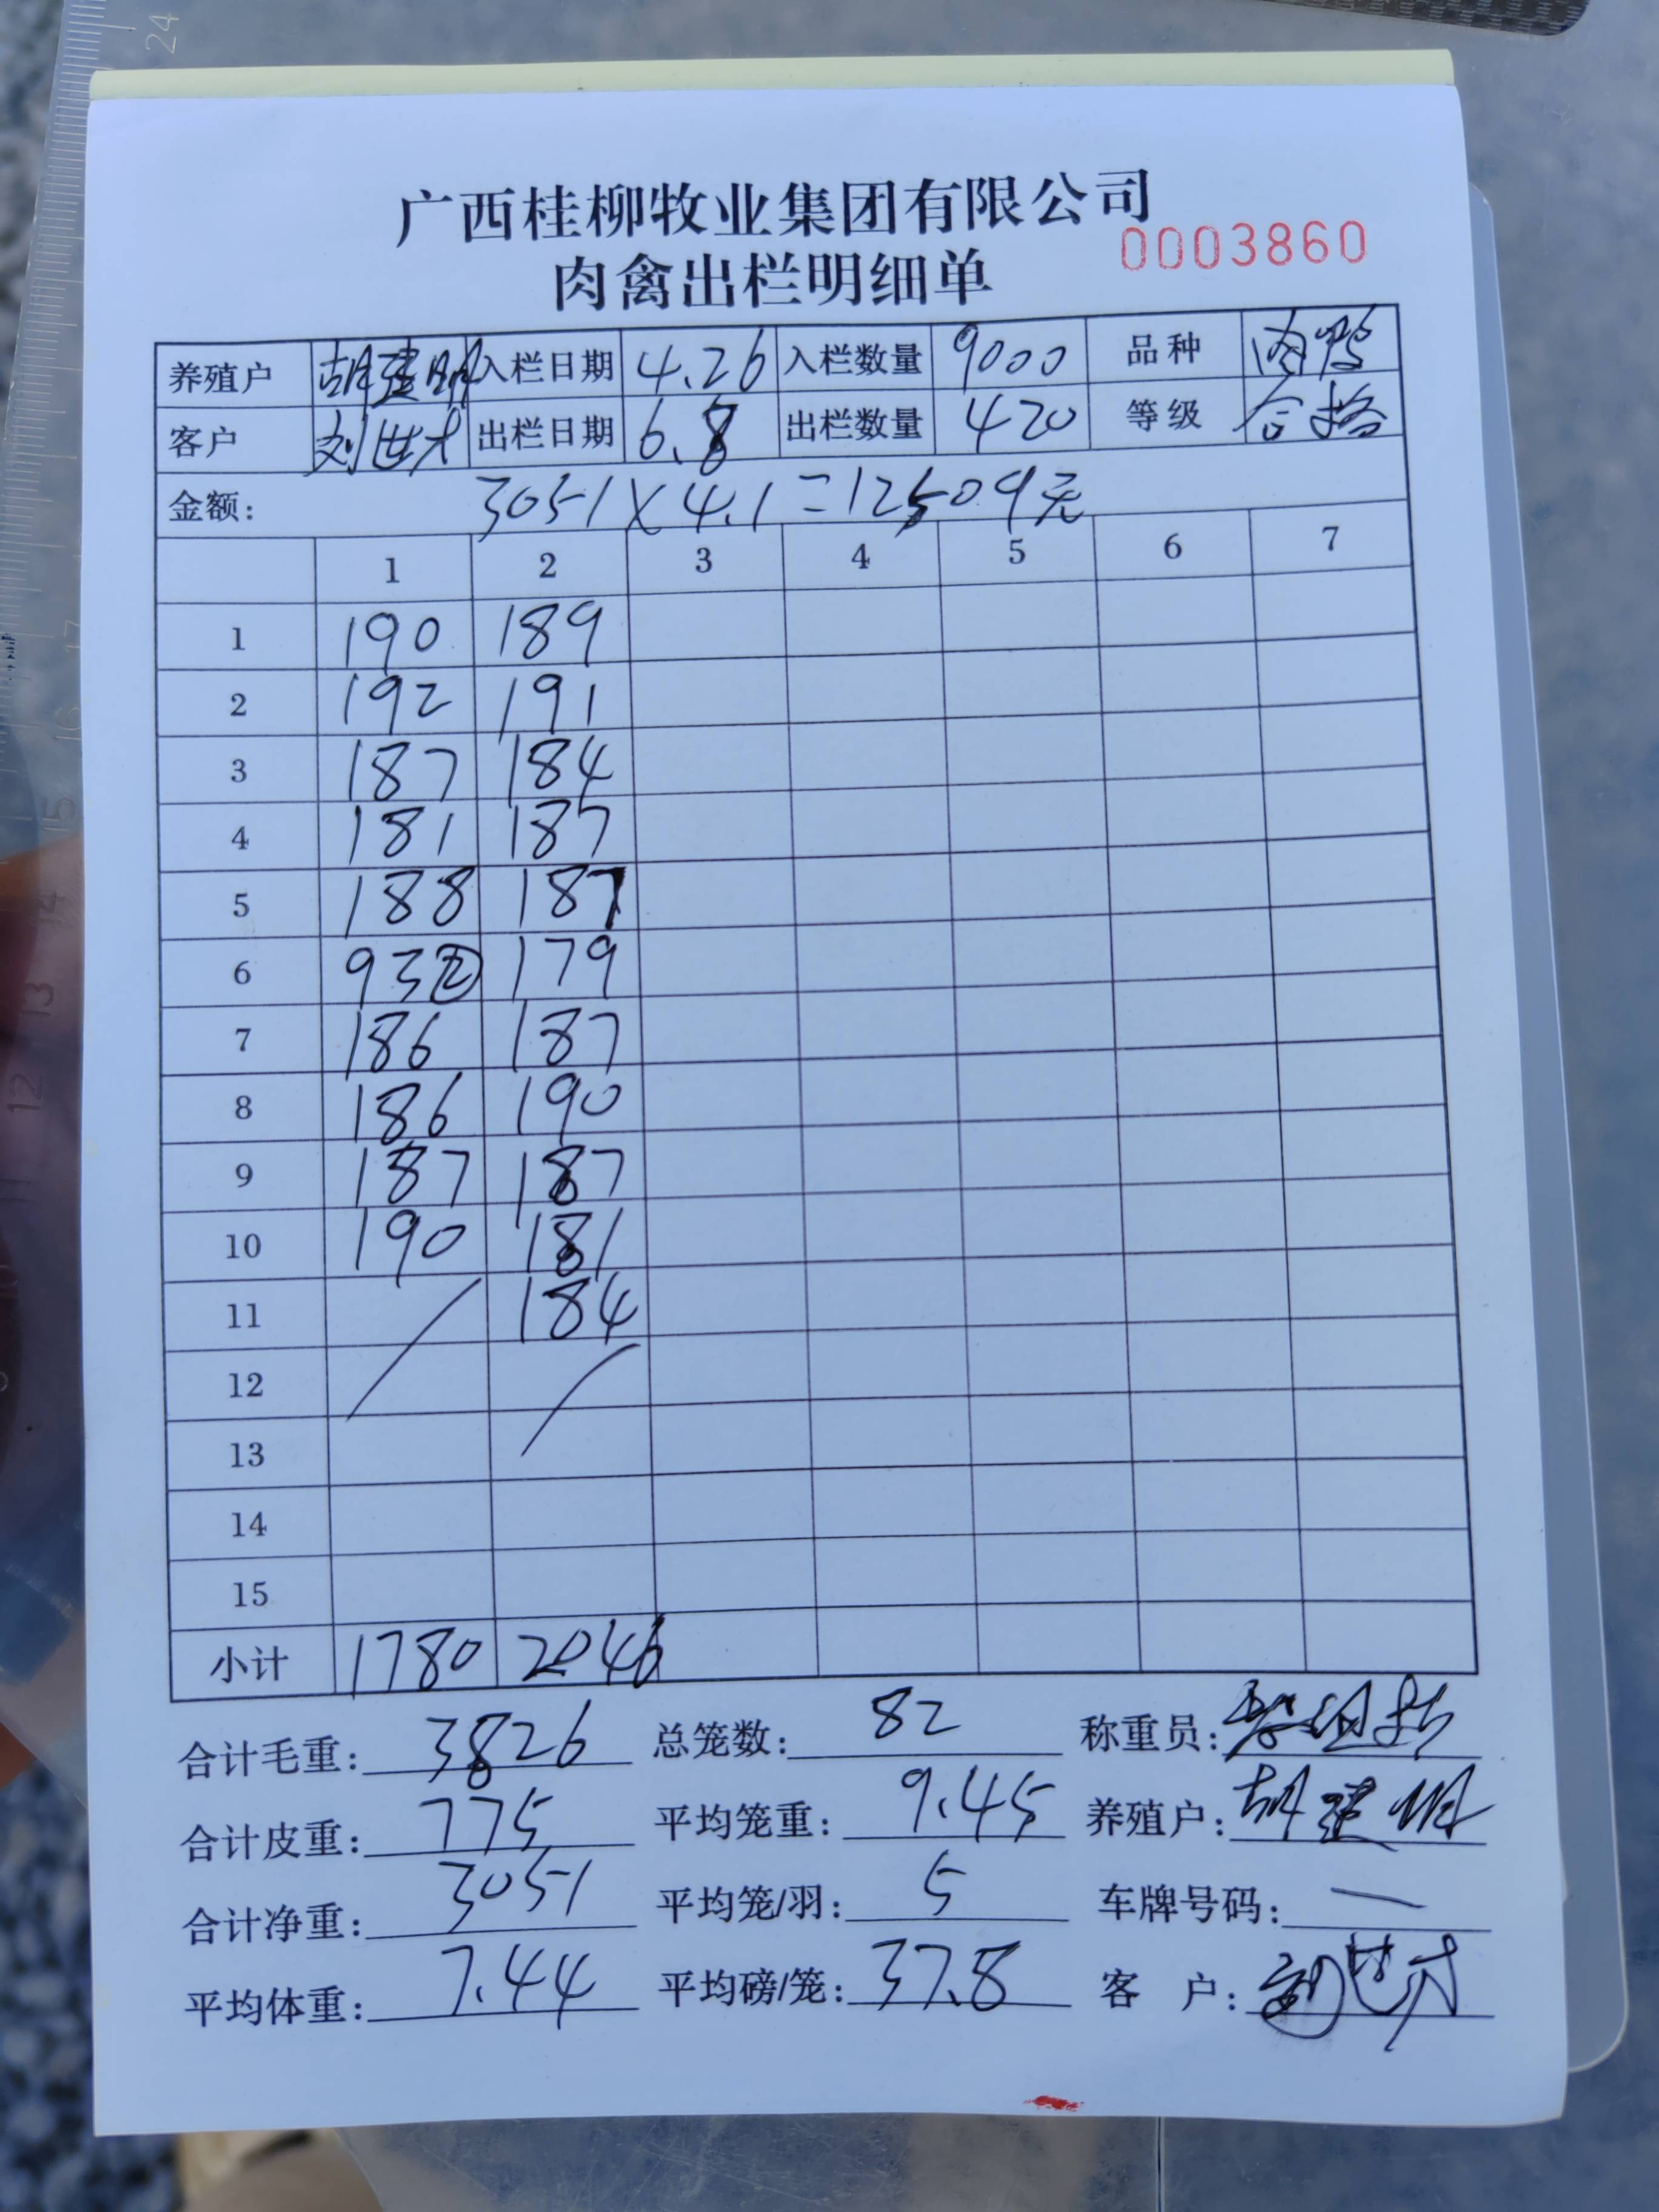 广西桂柳牧业集团有限公司
0003860
肉禽出栏明细单
养殖户 胡建明 入栏日期 4.26 入栏数量 9000 品种 肉鸭
客户 刘世才 出栏日期 6.8 出栏数量 420 等级 合格
金额: 3051×4.1=12509元
1 2 3 4 5 6 7
1 190 189
2 192 191
3 187 184
4 181 187
5 188 187
6 93② 179
7 186 187
8 186 190
9 187 187
10 190 181
11 184
12
13
14
15
小计 1780 2046
合计毛重: 3826 总笼数: 82 称重员:
合计皮重: 775 平均笼重: 9.45 养殖户: 胡建明
合计净重: 3051 平均笼/羽: 5 车牌号码: —
平均体重: 7.44 平均磅/笼: 37.8 客户: 刘世才
24
17
16
15
14
13
12
11
10